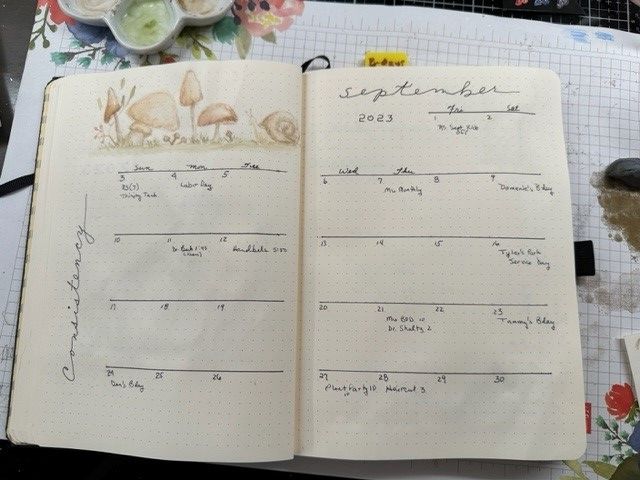 B-days
september
2023
Fri Sat
1 2
Sept Kick
Off
Sun Mon Tues
3 4 5
Labor Day
Thirsty Tank
Wed Thu
6 7 8 9
Mu Monthly
Domenic's Bday
10 11 12
Dr. Bark 1:45
Handbells 5:30
13 14 15 16
Tyler's Park
Service Day
17 18 19
20 21 22 23
Mu BOD 10
Dr. Shultz 2
Tammy's Bday
24 25 26
Dan's Bday
27 28 29 30
Plant Party 10
Haircut 3
consistency